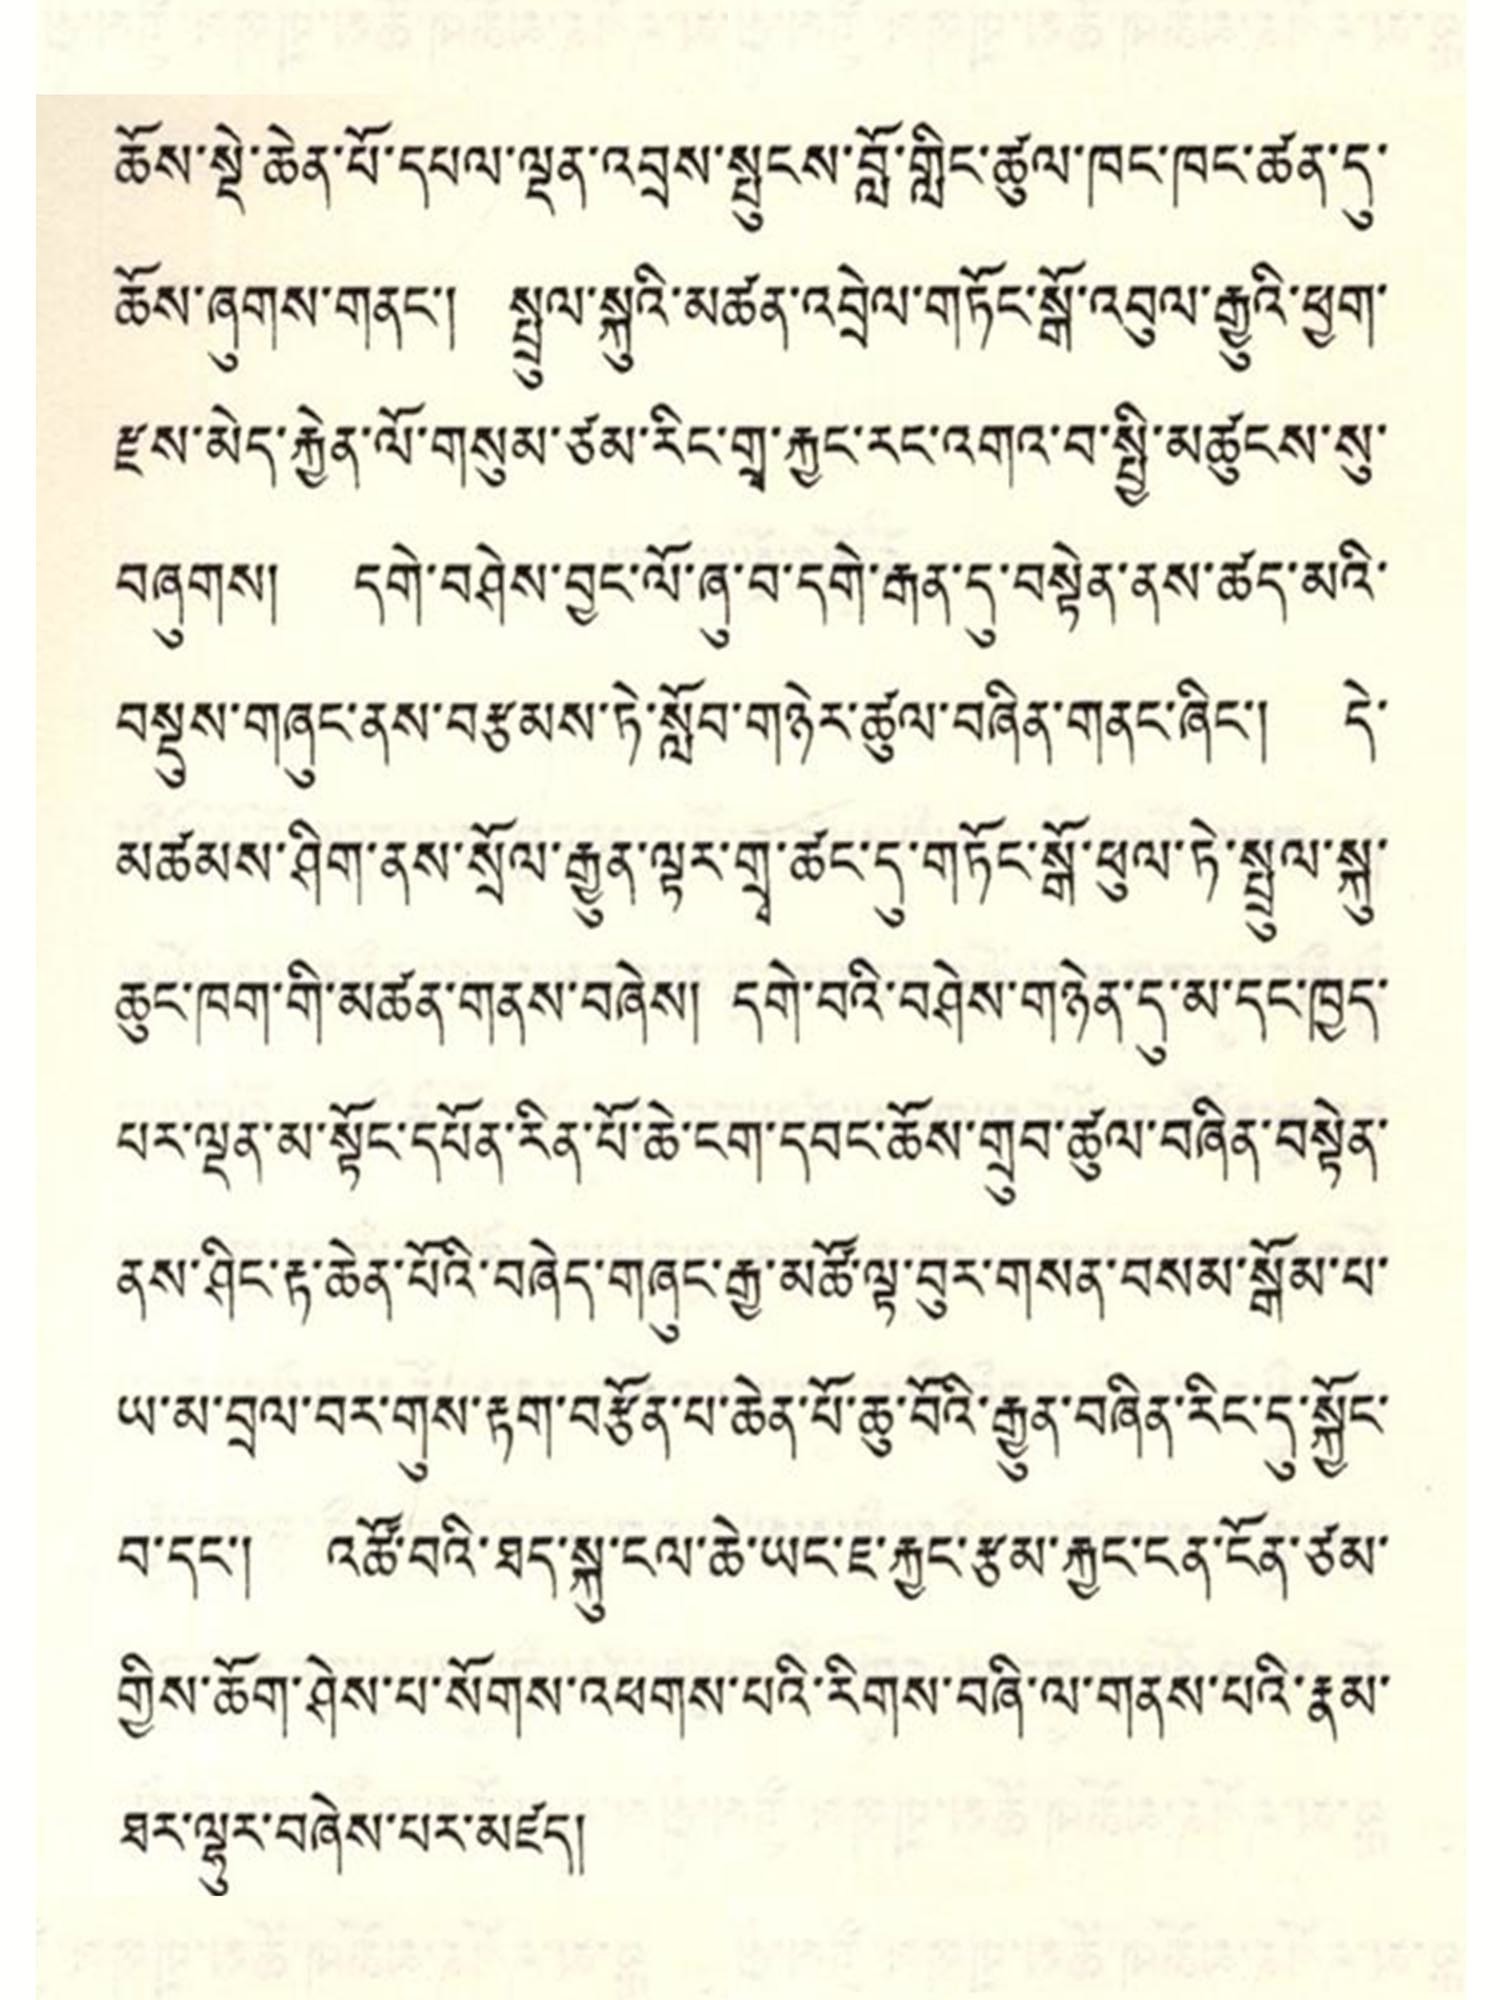 ཆོས་སྡེ་ཆེན་པོ་དཔལ་ལྡན་འབྲས་སྤུངས་བློ་གླིང་ཚུལ་ཁང་ཁང་ཚན་དུ་
ཆོས་ཞུགས་གནང་། སྤྲུལ་སྐུའི་མཚན་འབྲེལ་གཏོང་སྒོ་འབུལ་རྒྱུའི་ཕྱག་
རྫས་མེད་རྐྱེན་ལོ་གསུམ་ཙམ་རིང་གྲྭ་རྐྱང་རང་འགའ་བ་སྤྱི་མཚུངས་སུ་
བཞུགས། དགེ་བཤེས་བྱང་ལོ་ཞུ་བ་དགེ་རྒན་དུ་བསྟེན་ནས་ཚད་མའི་
བསྡུས་གཞུང་ནས་བརྩམས་ཏེ་སློབ་གཉེར་ཚུལ་བཞིན་གནང་ཞིང་། དེ་
མཚམས་ཤིག་ནས་སྲོལ་རྒྱུན་ལྟར་གྲྭ་ཚང་དུ་གཏོང་སྒོ་ཕུལ་ཏེ་སྤྲུལ་སྐུ་
ཆུང་ཁག་གི་མཚན་གནས་བཞེས། དགེ་བའི་བཤེས་གཉེན་དུ་མ་དང་ཁྱད་
པར་ལྡན་མ་སྟོང་དཔོན་རིན་པོ་ཆེ་ངག་དབང་ཆོས་གྲུབ་ཚུལ་བཞིན་བསྟེན་
ནས་ཤིང་རྟ་ཆེན་པོའི་བཞེད་གཞུང་རྒྱ་མཚོ་ལྟ་བུར་གསན་བསམ་སྒོམ་པ་
ཡ་མ་བྲལ་བར་གུས་རྟག་བརྩོན་པ་ཆེན་པོ་ཆུ་བོའི་རྒྱུན་བཞིན་རིང་དུ་སྐྱོང་
བ་དང་། འཚོ་བའི་ཐད་སྐུ་ངལ་ཆེ་ཡང་ཇ་རྐྱང་རྩམ་རྐྱང་ངན་ངོན་ཙམ་
གྱིས་ཆོག་ཤེས་པ་སོགས་འཕགས་པའི་རིགས་བཞི་ལ་གནས་པའི་རྣམ་
ཐར་ལྷུར་བཞེས་པར་མཛད།